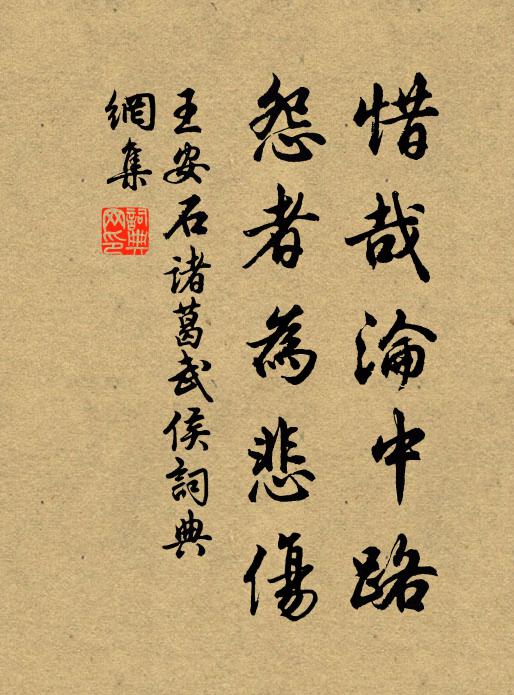 惜哉淪中路
怨者為悲傷
王安石諸葛武侯詞典
網集
詞典
网印